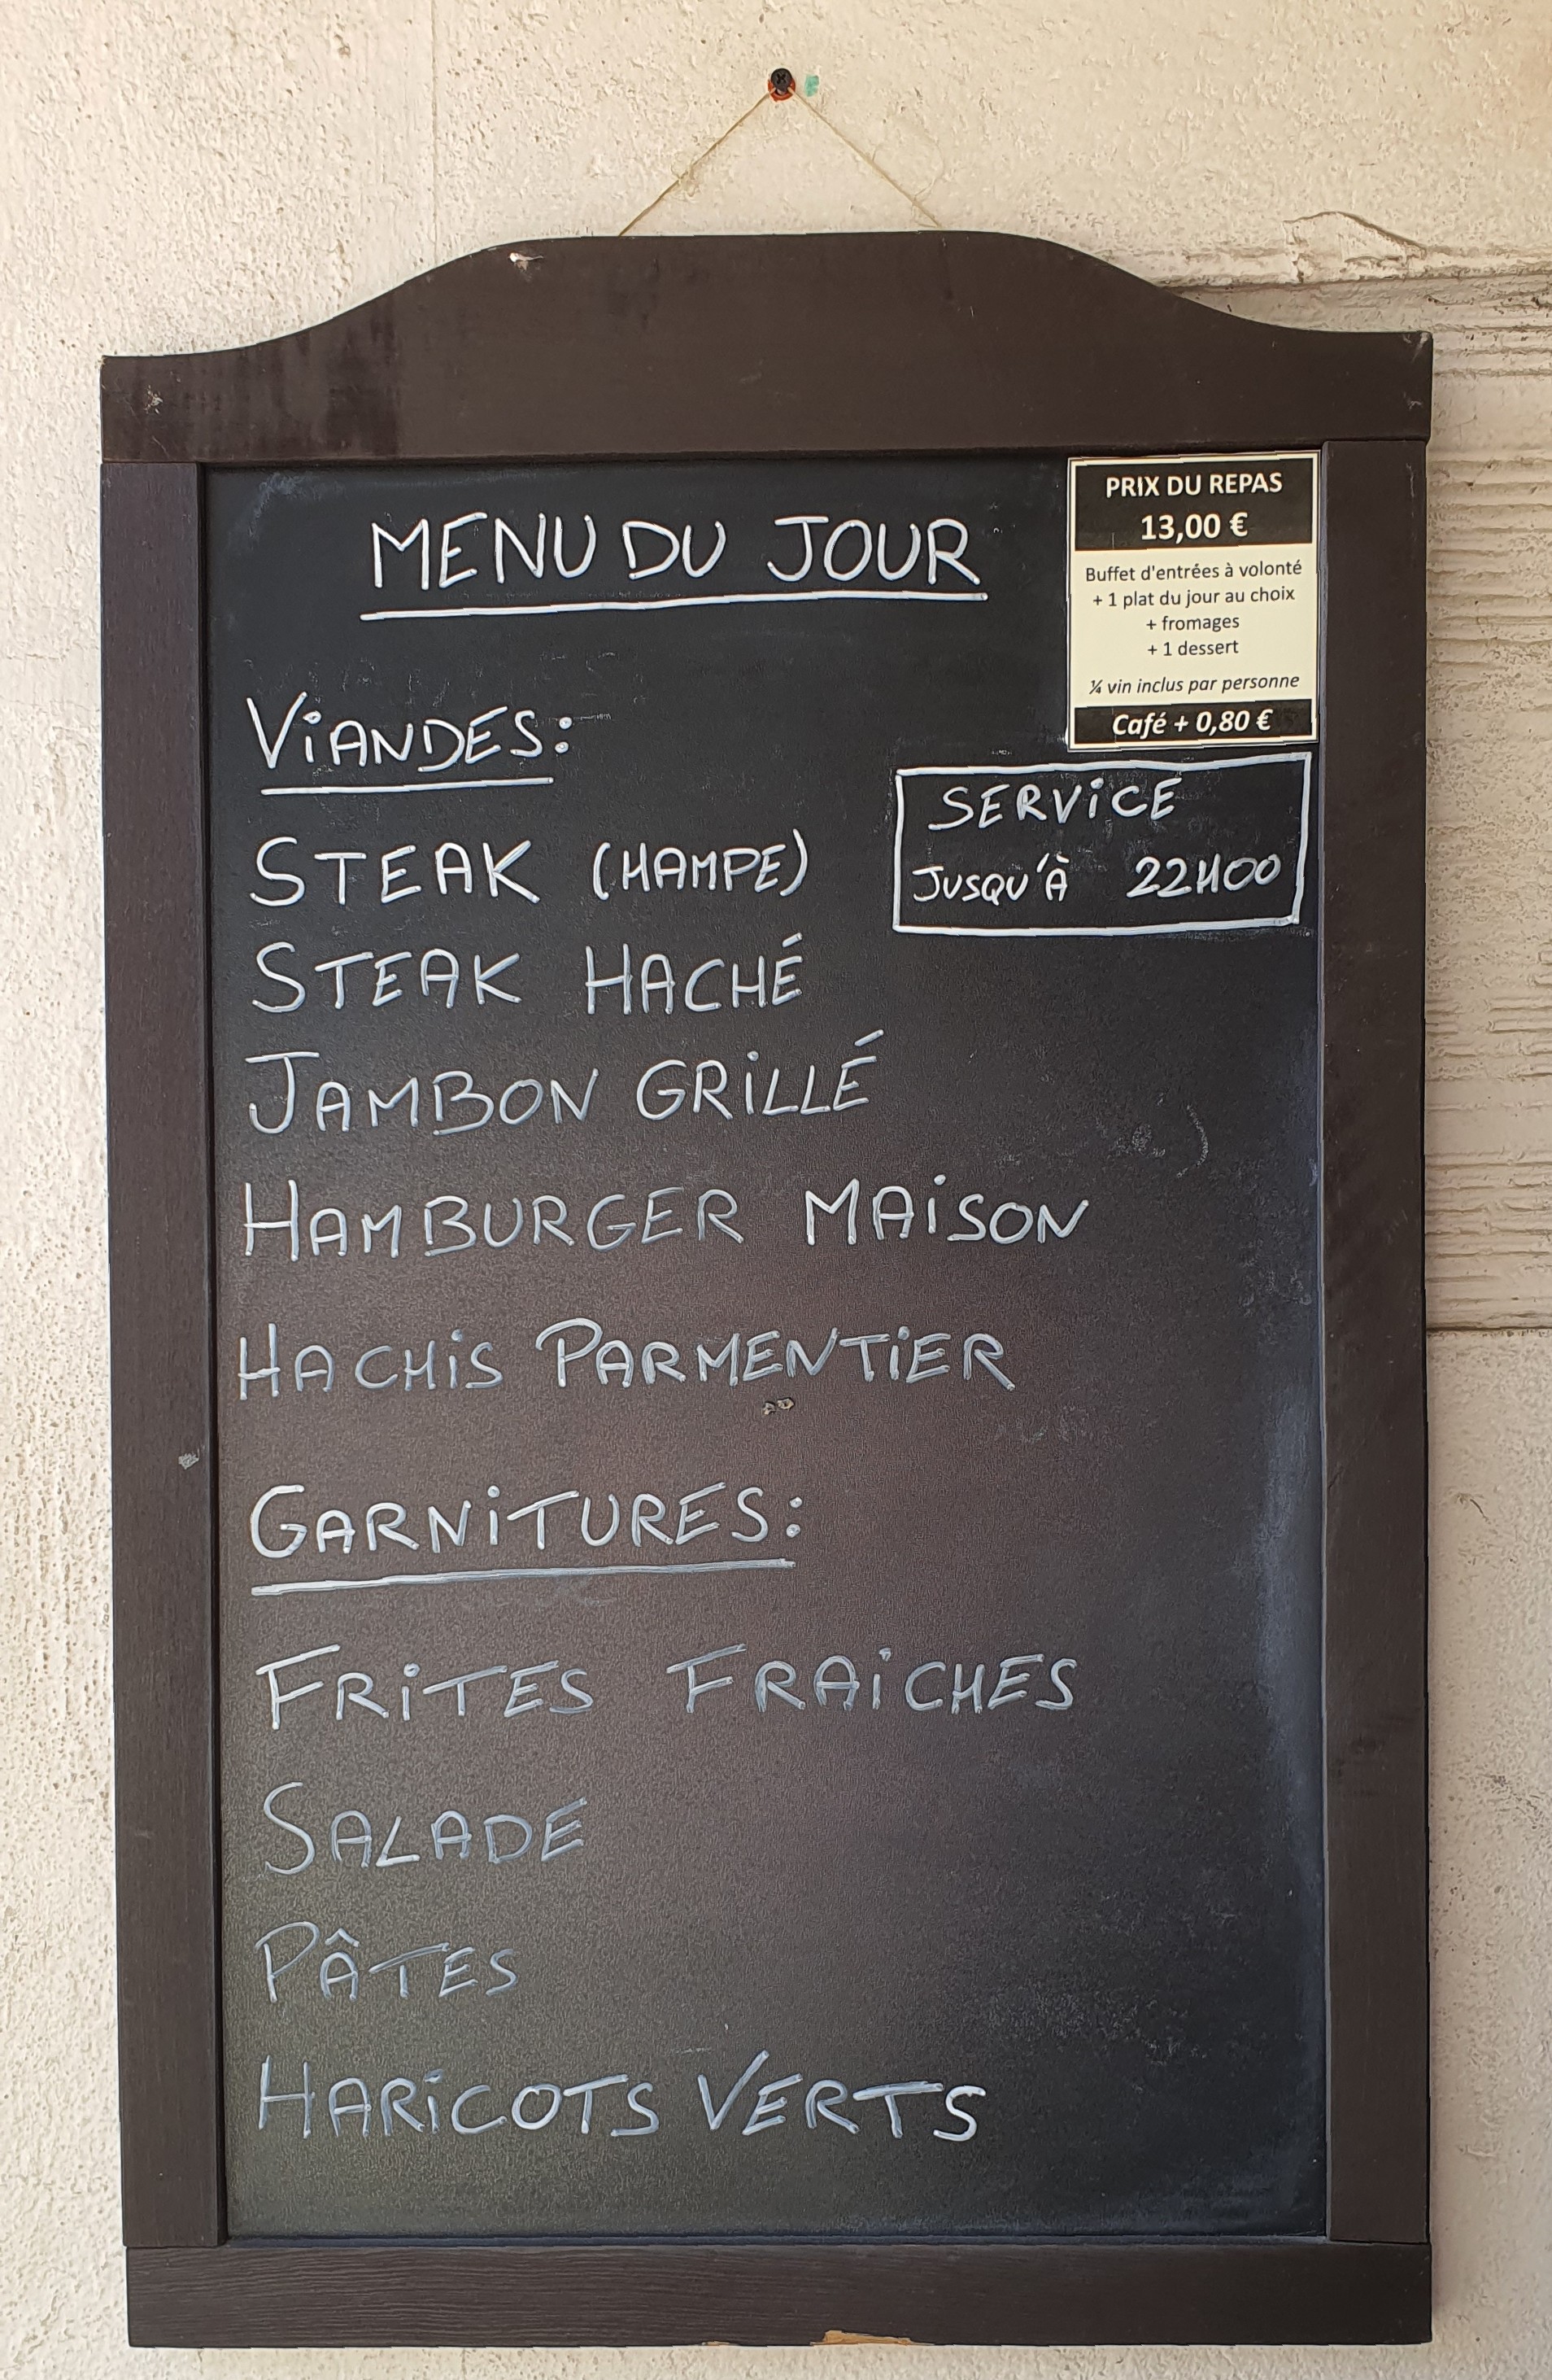 MENU DU JOUR
PRIX DU REPAS
13,00 €
Buffet d'entrées à volonté
+ 1 plat du jour au choix
+ fromages
+ 1 dessert
¼ vin inclus par personne
Café + 0,80 €
SERVICE
JUSQU'À 22H00
VIANDES:
STEAK (HAMPE)
STEAK HACHÉ
JAMBON GRILLÉ
HAMBURGER MAISON
HACHIS PARMENTIER
GARNITURES:
FRITES FRAICHES
SALADE
PÂTES
HARICOTS VERTS